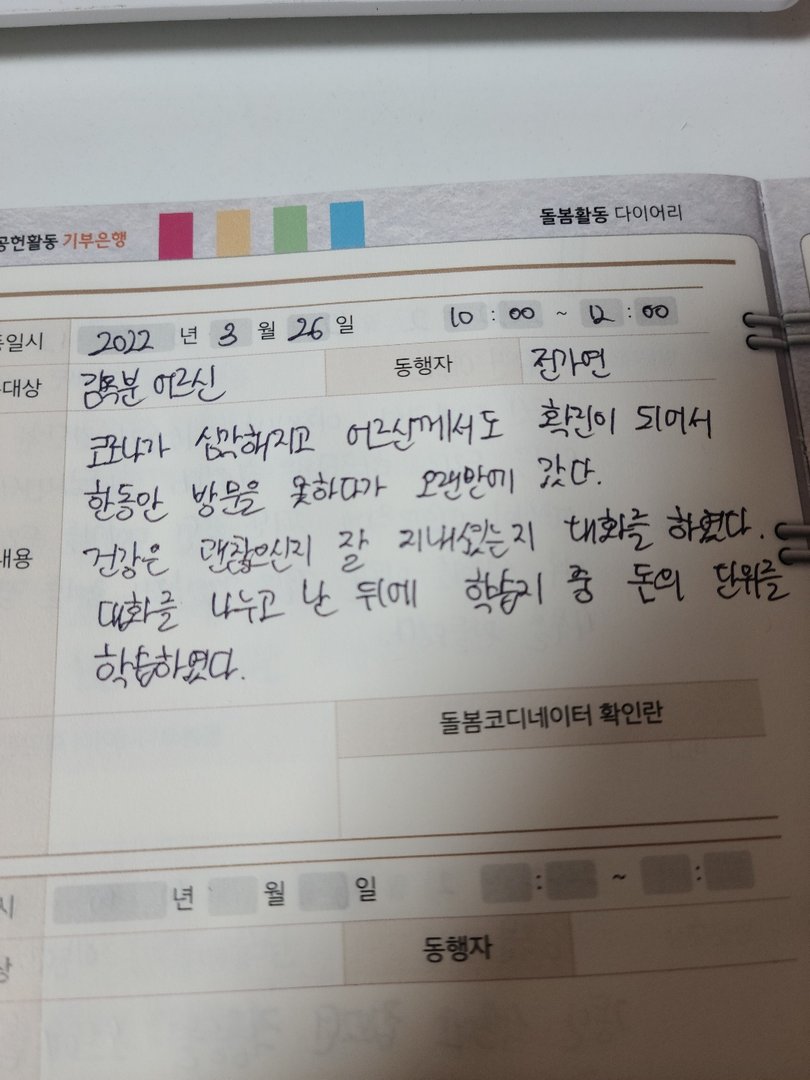 공헌활동 기부은행
돌봄활동 다이어리
동일시 2022 년 3 월 26 일 10 : 00 ~ 12 : 00
대상 김옥분 어르신 동행자 전가연
내용
코로나가 심각해지고 어르신께서도 확진이 되어서
한동안 방문을 못하다가 오랜만에 갔다.
건강은 괜찮으신지 잘 지내셨는지 대화를 하였다.
대화를 나누고 난 뒤에 학습지 중 돈의 단위를
학습하였다.
돌봄코디네이터 확인란
시 년 월 일 : ~ :
상 동행자